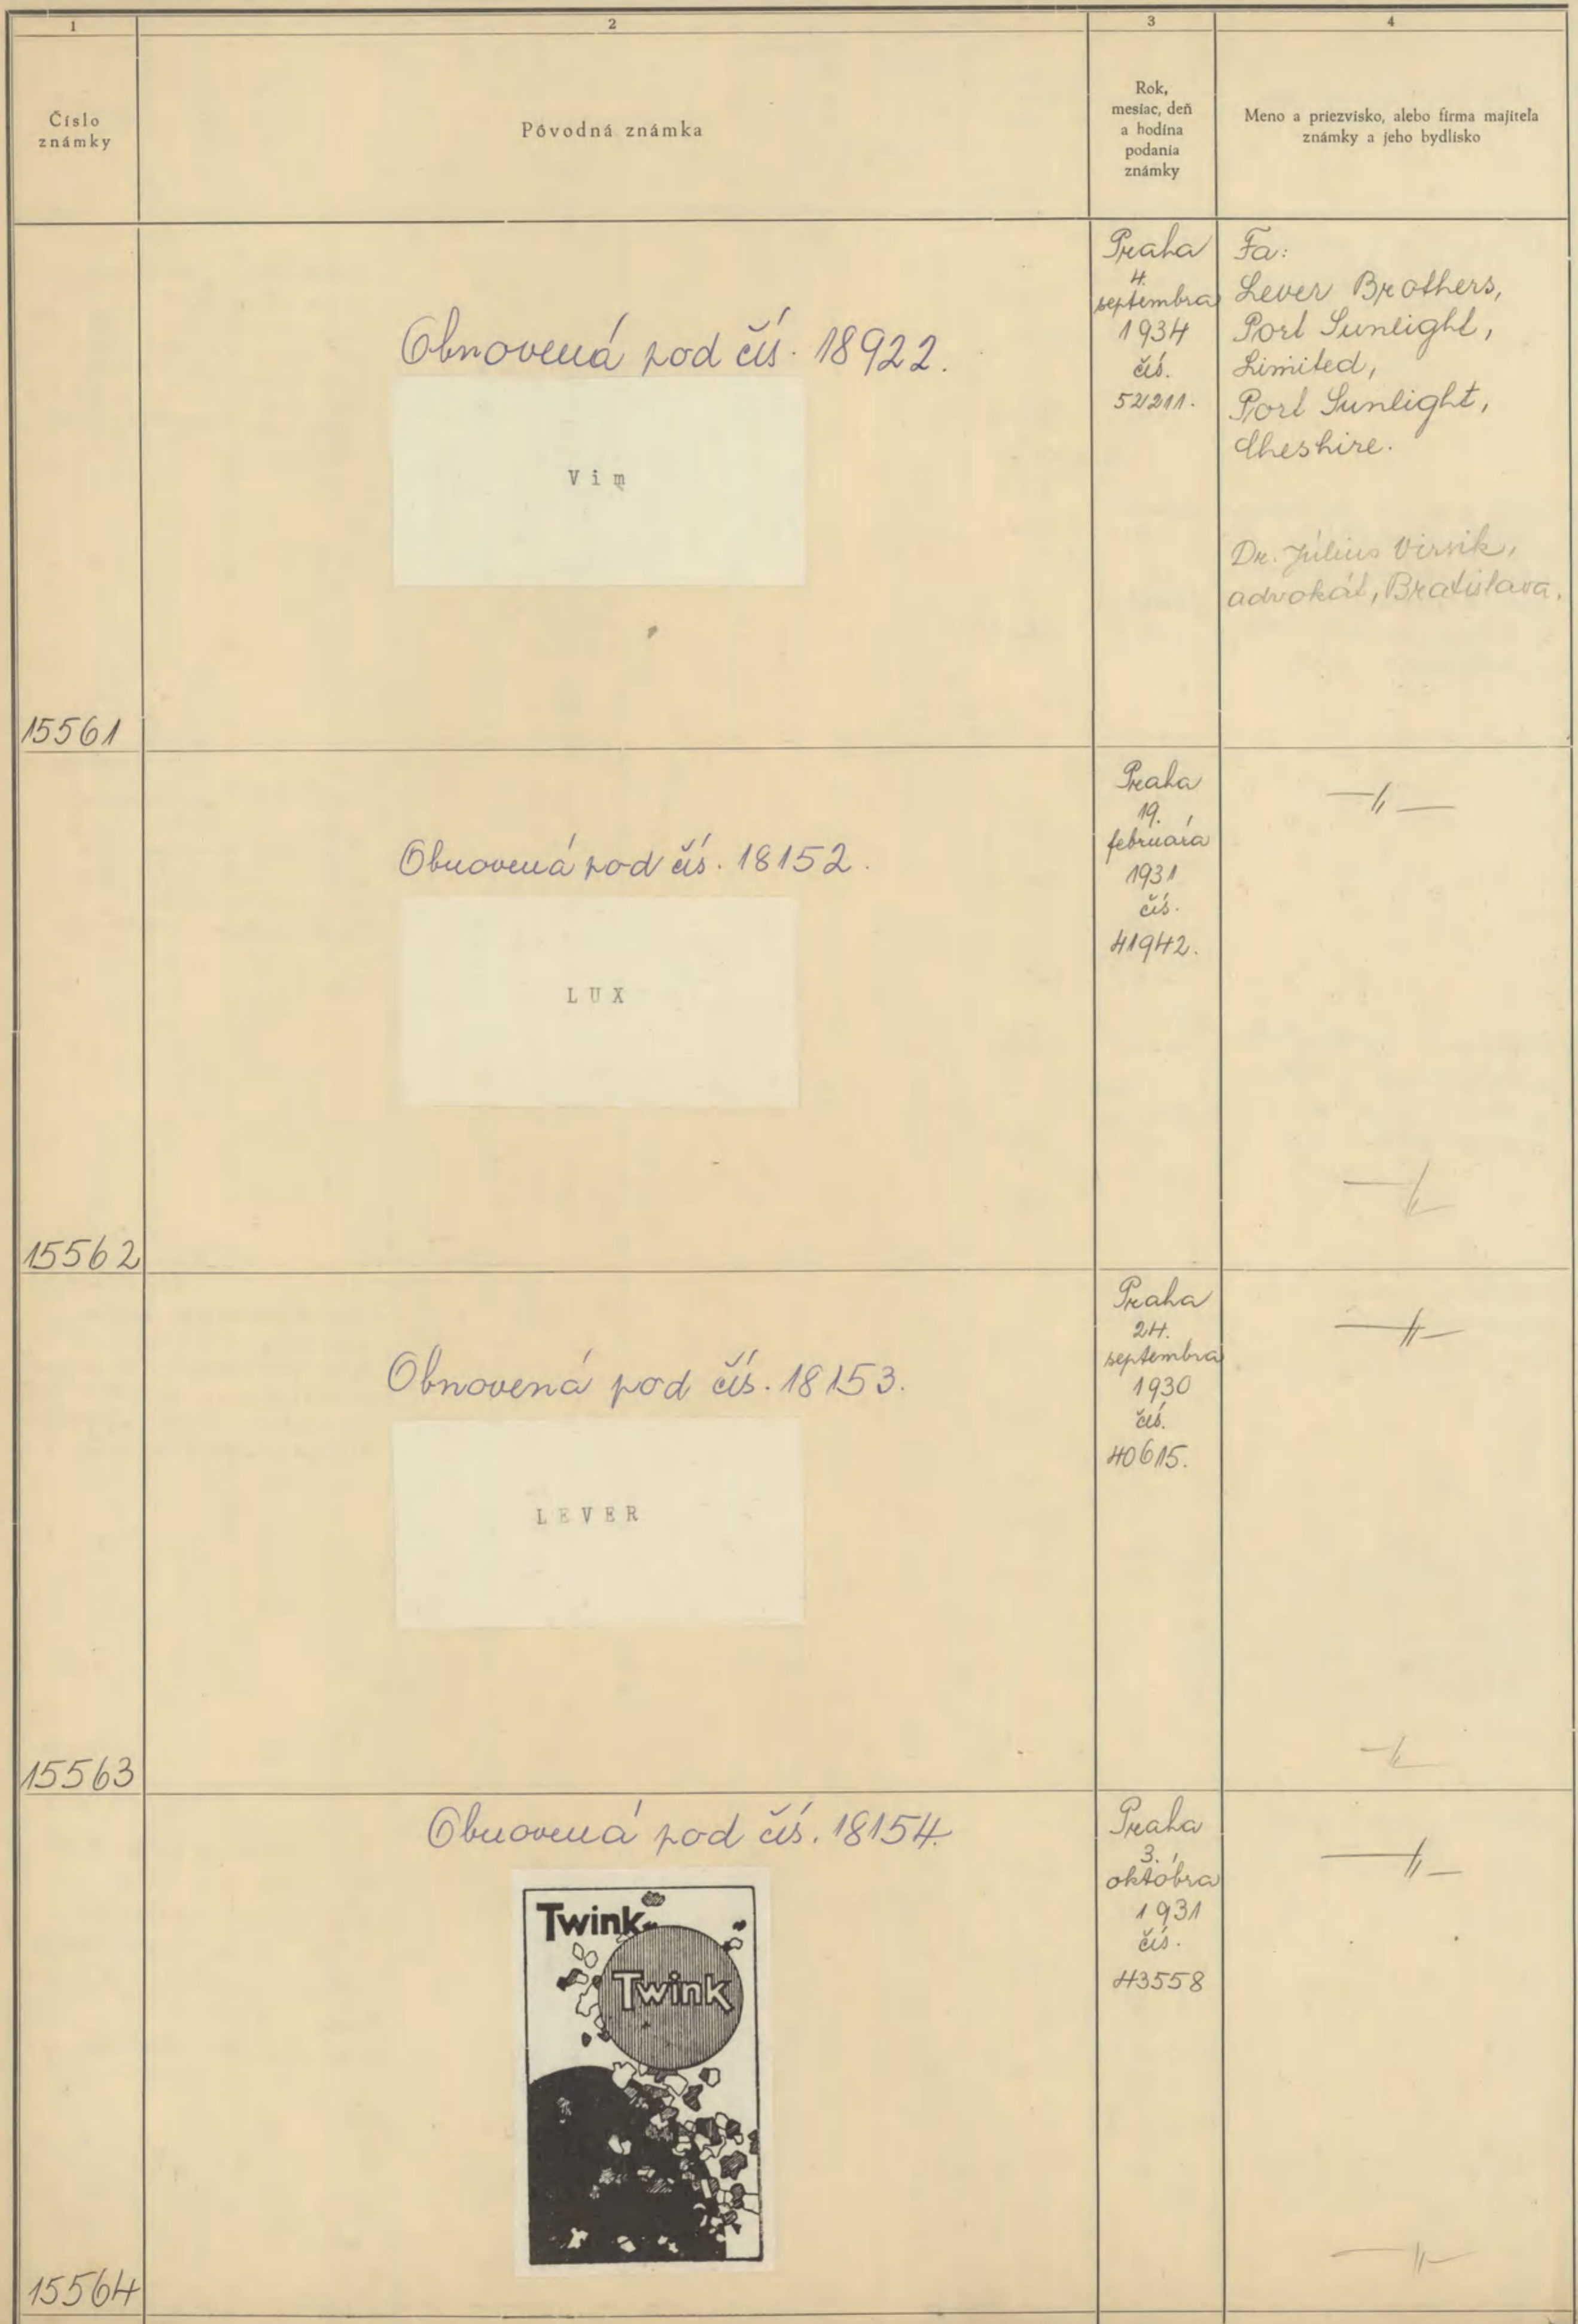 1
2
3
4
Číslo
známky
Pôvodná známka
Rok,
mesiac, deň
a hodina
podania
známky
Meno a priezvisko, alebo firma majiteľa
známky a jeho bydlisko
15561
Obnovená pod čís. 18922.
Vim
Praha
4.
septembra
1934
čís.
52211.
Fa:
Lever Brothers,
Port Sunlight,
Limited,
Port Sunlight,
Cheshire.
Dr. Július Virsik,
advokát, Bratislava.
15562
Obnovená pod čís. 18152.
LUX
Praha
19.
februára
1931
čís.
41942.
—〃—
—〃—
15563
Obnovená pod čís. 18153.
LEVER
Praha
24.
septembra
1930
čís.
40615.
—〃—
—〃—
15564
Obnovená pod čís. 18154.
Twink
Twink
Praha
3.
októbra
1931
čís.
43558
—〃—
—〃—